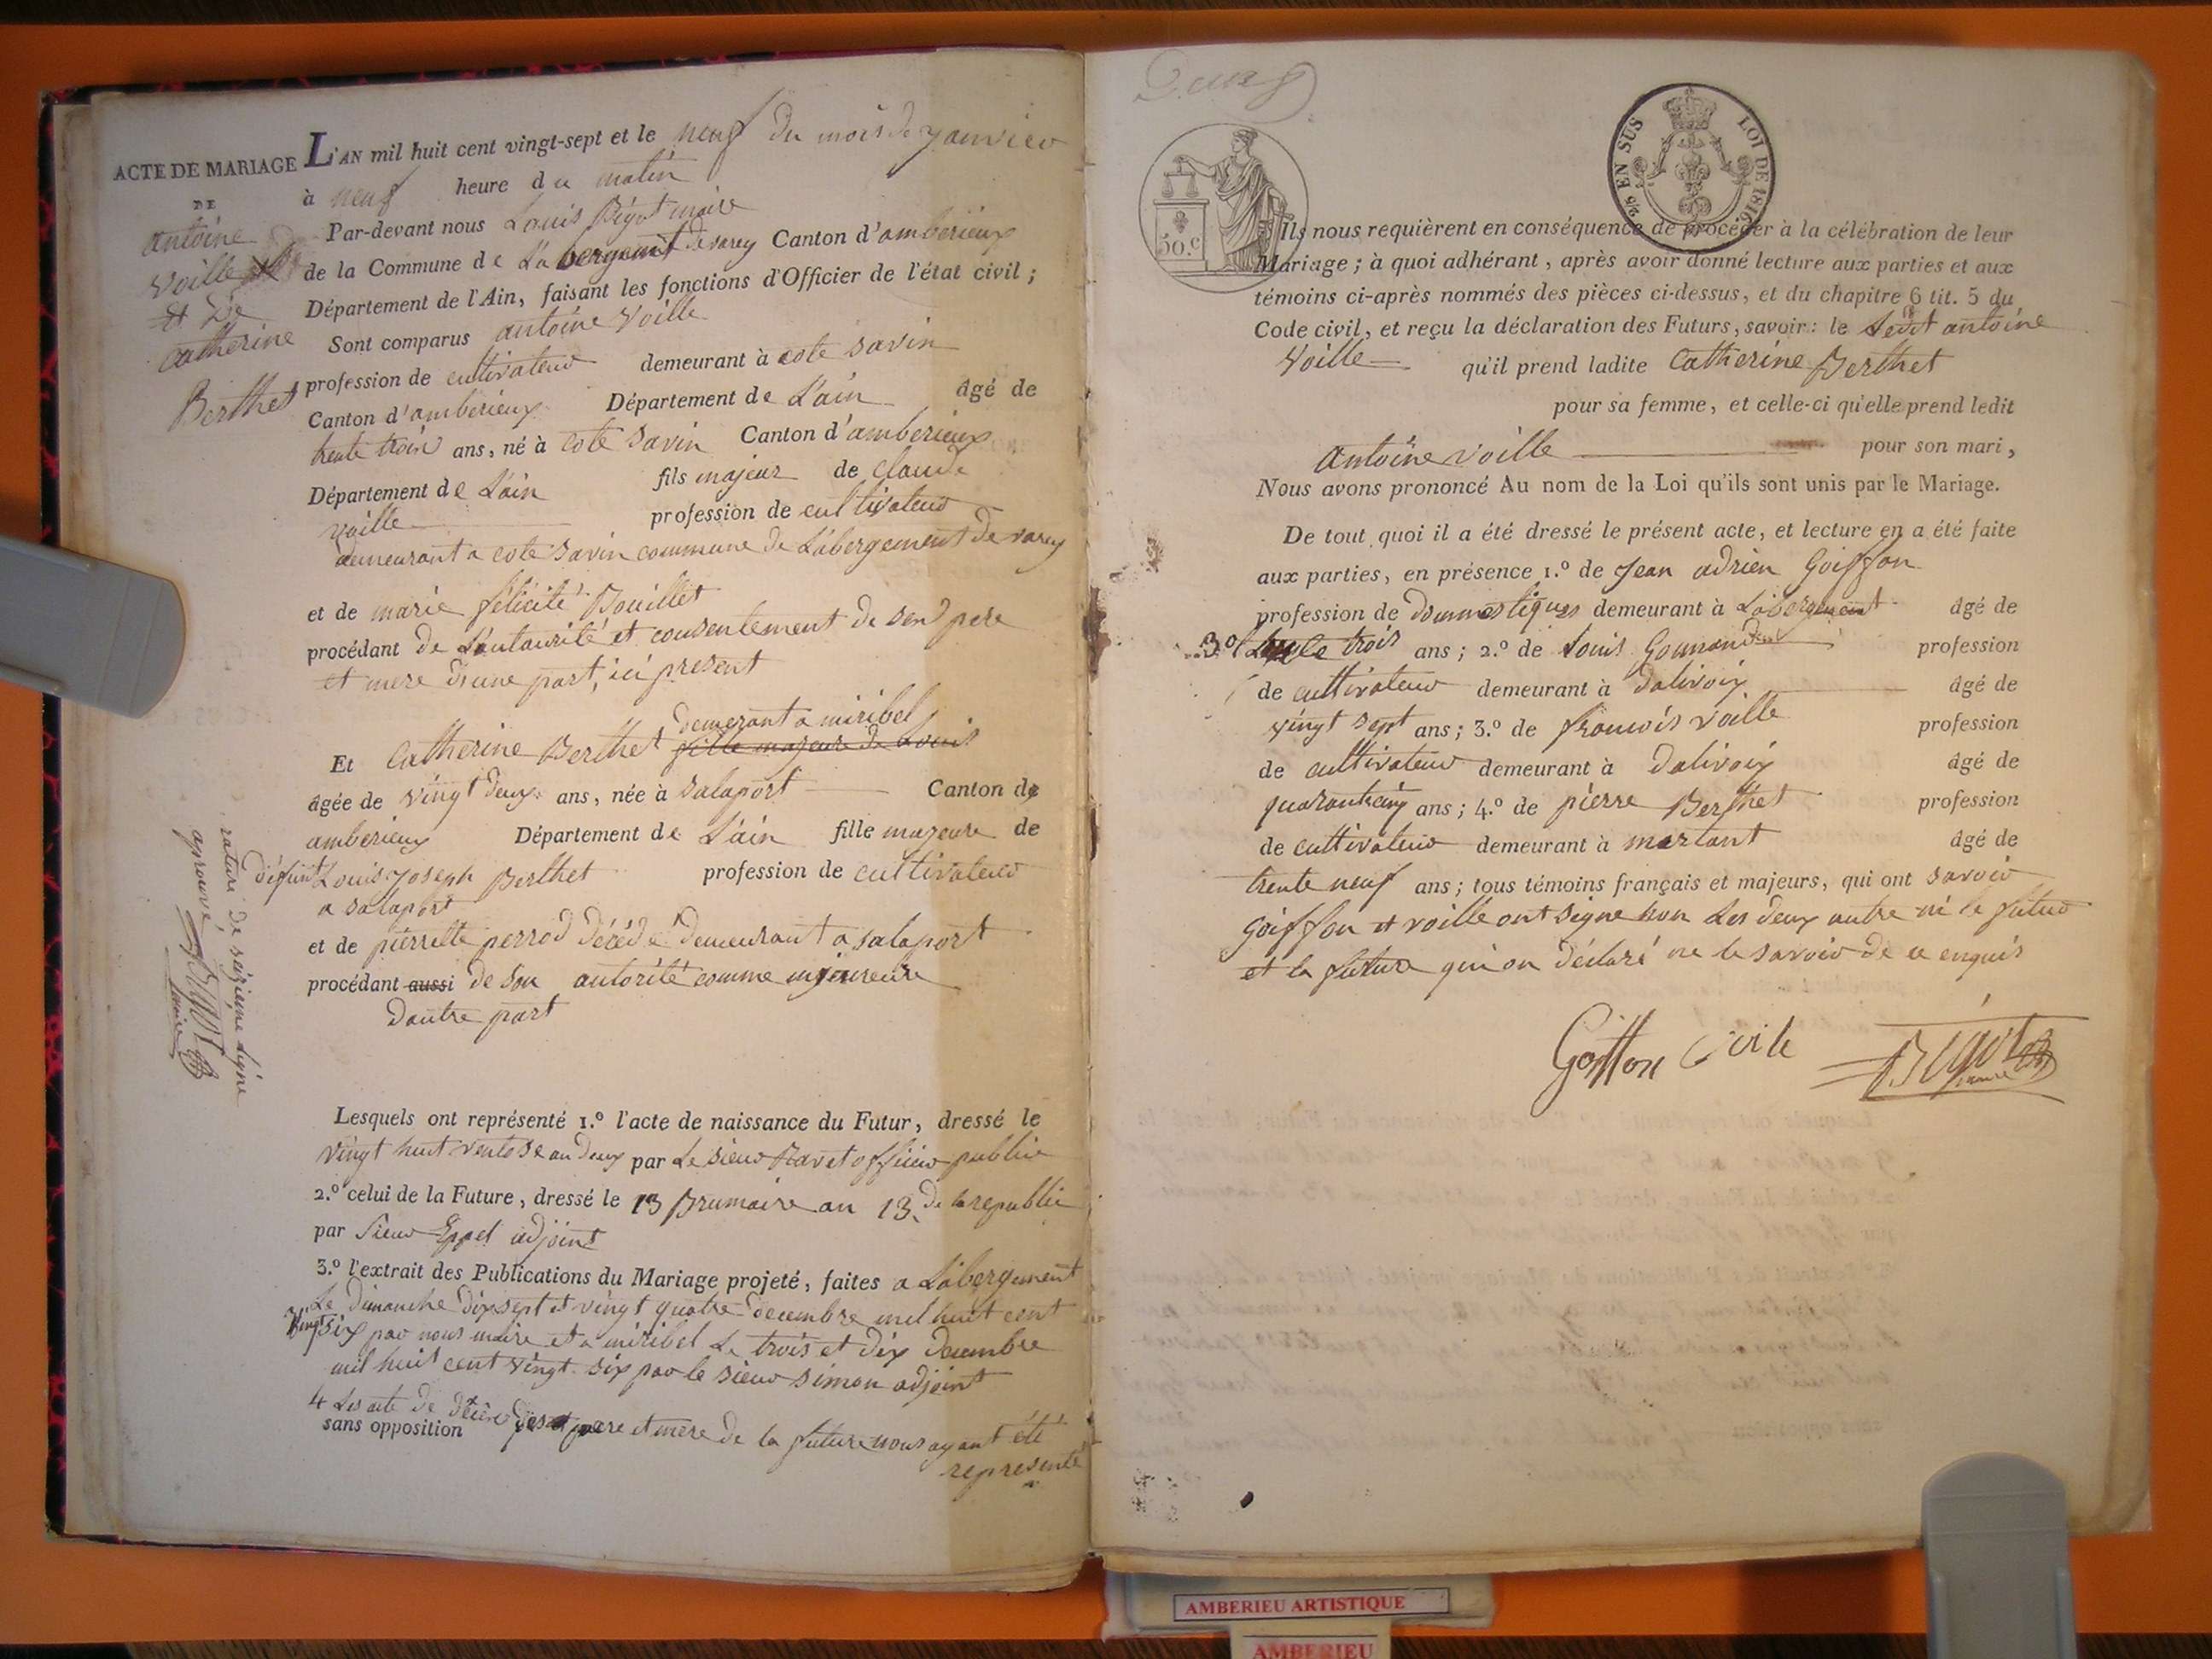 ACTE DE MARIAGE
DE
antoine
Voille
et De
Catherine
Berthet
L'AN mil huit cent vingt-sept et le neuf du mois de janvier
à neuf heure du matin
Par-devant nous Louis Bigot maire
de la Commune de L'abergement de varey Canton d'amberieux
Département de l'Ain, faisant les fonctions d'Officier de l'état civil ;
Sont comparus antoine Voille
profession de cultivateur demeurant à cote savin
Canton d'amberieux Département de L'ain âgé de
trente trois ans, né à cote savin Canton d'amberieux
Département de L'ain fils majeur de claude
voille profession de cultivateur
demeurant a cote savin commune de L'abergement de varey
et de marie félicité Bouillet
procédant de L'autaurité et consentement de ses pere
et mere d'une part, ici present
demerant a miribel
Et Catherine Berthet fille majeure de Louis
âgée de vingt deux ans, née à salaport Canton de
amberieux Département de L'ain fille majeure de
défunt Louis joseph Berthet profession de cultivateur
a salaport
et de pierrette perrod décédé demeurant a salaport
procédant aussi de son autorité comme majeure
dautre part
rature de seizieme ligne
aprouvé Bigot
maire
Lesquels ont représenté 1.º l'acte de naissance du Futur, dressé le
vingt huit ventose an deux par Le sieur Ravet officier public
2.º celui de la Future, dressé le 13 Brumaire an 13 de la republic
par sieur Eppel adjoint
3.º l'extrait des Publications du Mariage projeté, faites a L'abergement
Le Dimanche dix sept et vingt quatre decembre mil huit cent
vingt six par nous maire et a miribel Le trois et dix decembre
mil huit cent vingt six par le sieur simon adjoint
4 Les acte de décès des pere et mere de la future nous ayant été
sans opposition
representé
50.c
2/5 EN SUS LOI DE 1816
Ils nous requièrent en conséquence de procéder à la célébration de leur
Mariage ; à quoi adhérant, après avoir donné lecture aux parties et aux
témoins ci-après nommés des pièces ci-dessus, et du chapitre 6 tit. 5 du
Code civil, et reçu la déclaration des Futurs, savoir : le Ledit antoine
Voille qu'il prend ladite Catherine Berthet
pour sa femme, et celle-ci qu'elle prend ledit
antoine voille pour son mari,
Nous avons prononcé Au nom de la Loi qu'ils sont unis par le Mariage.
De tout quoi il a été dressé le présent acte, et lecture en a été faite
aux parties, en présence 1.º de Jean adrien Goiffon
profession de dommestiques demeurant à L'abergement âgé de
trois ans ; 2.º de Louis profession
de cultivateur demeurant à dalivoix âgé de
vingt sept ans ; 3.º de francois voille profession
de cultivateur demeurant à dalivoix âgé de
quarantecinq ans ; 4.º de pierre Berthet profession
de cultivateur demeurant à martant âgé de
trente neuf ans ; tous témoins français et majeurs, qui ont savoir
Goiffon et voille ont signe non Les deux autre ni le futur
et la future qui on déclaré ne le savoir de ce enquis
Goiffon voile Bigot
maire
AMBERIEU ARTISTIQUE
AMBERIEU